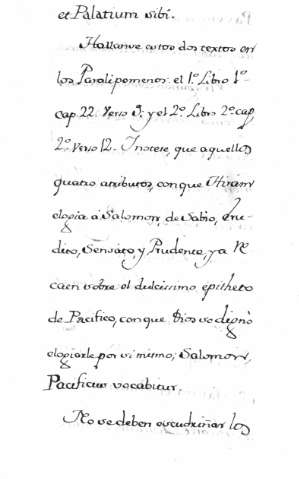 et Palatium sibi.
Hallanse estos dos textos en
los Paralipomenos. el 1º Libro 1º
cap. 22. Verso 9; y el 2º Libro 2º cap.
2º Verso 12. Notese, que aquellos
quatro atributos, con que Hiram
elogia á Salomon, de Sabio, Eru-
dito, Sensato, y Prudente, ya Re
caen sobre el dulcissimo epitheto
de Pacifico, con que Dios se dignò
elogiarle por si mismo; Salomon,
Pacificus vocabitur.
No se deben escudriñar los